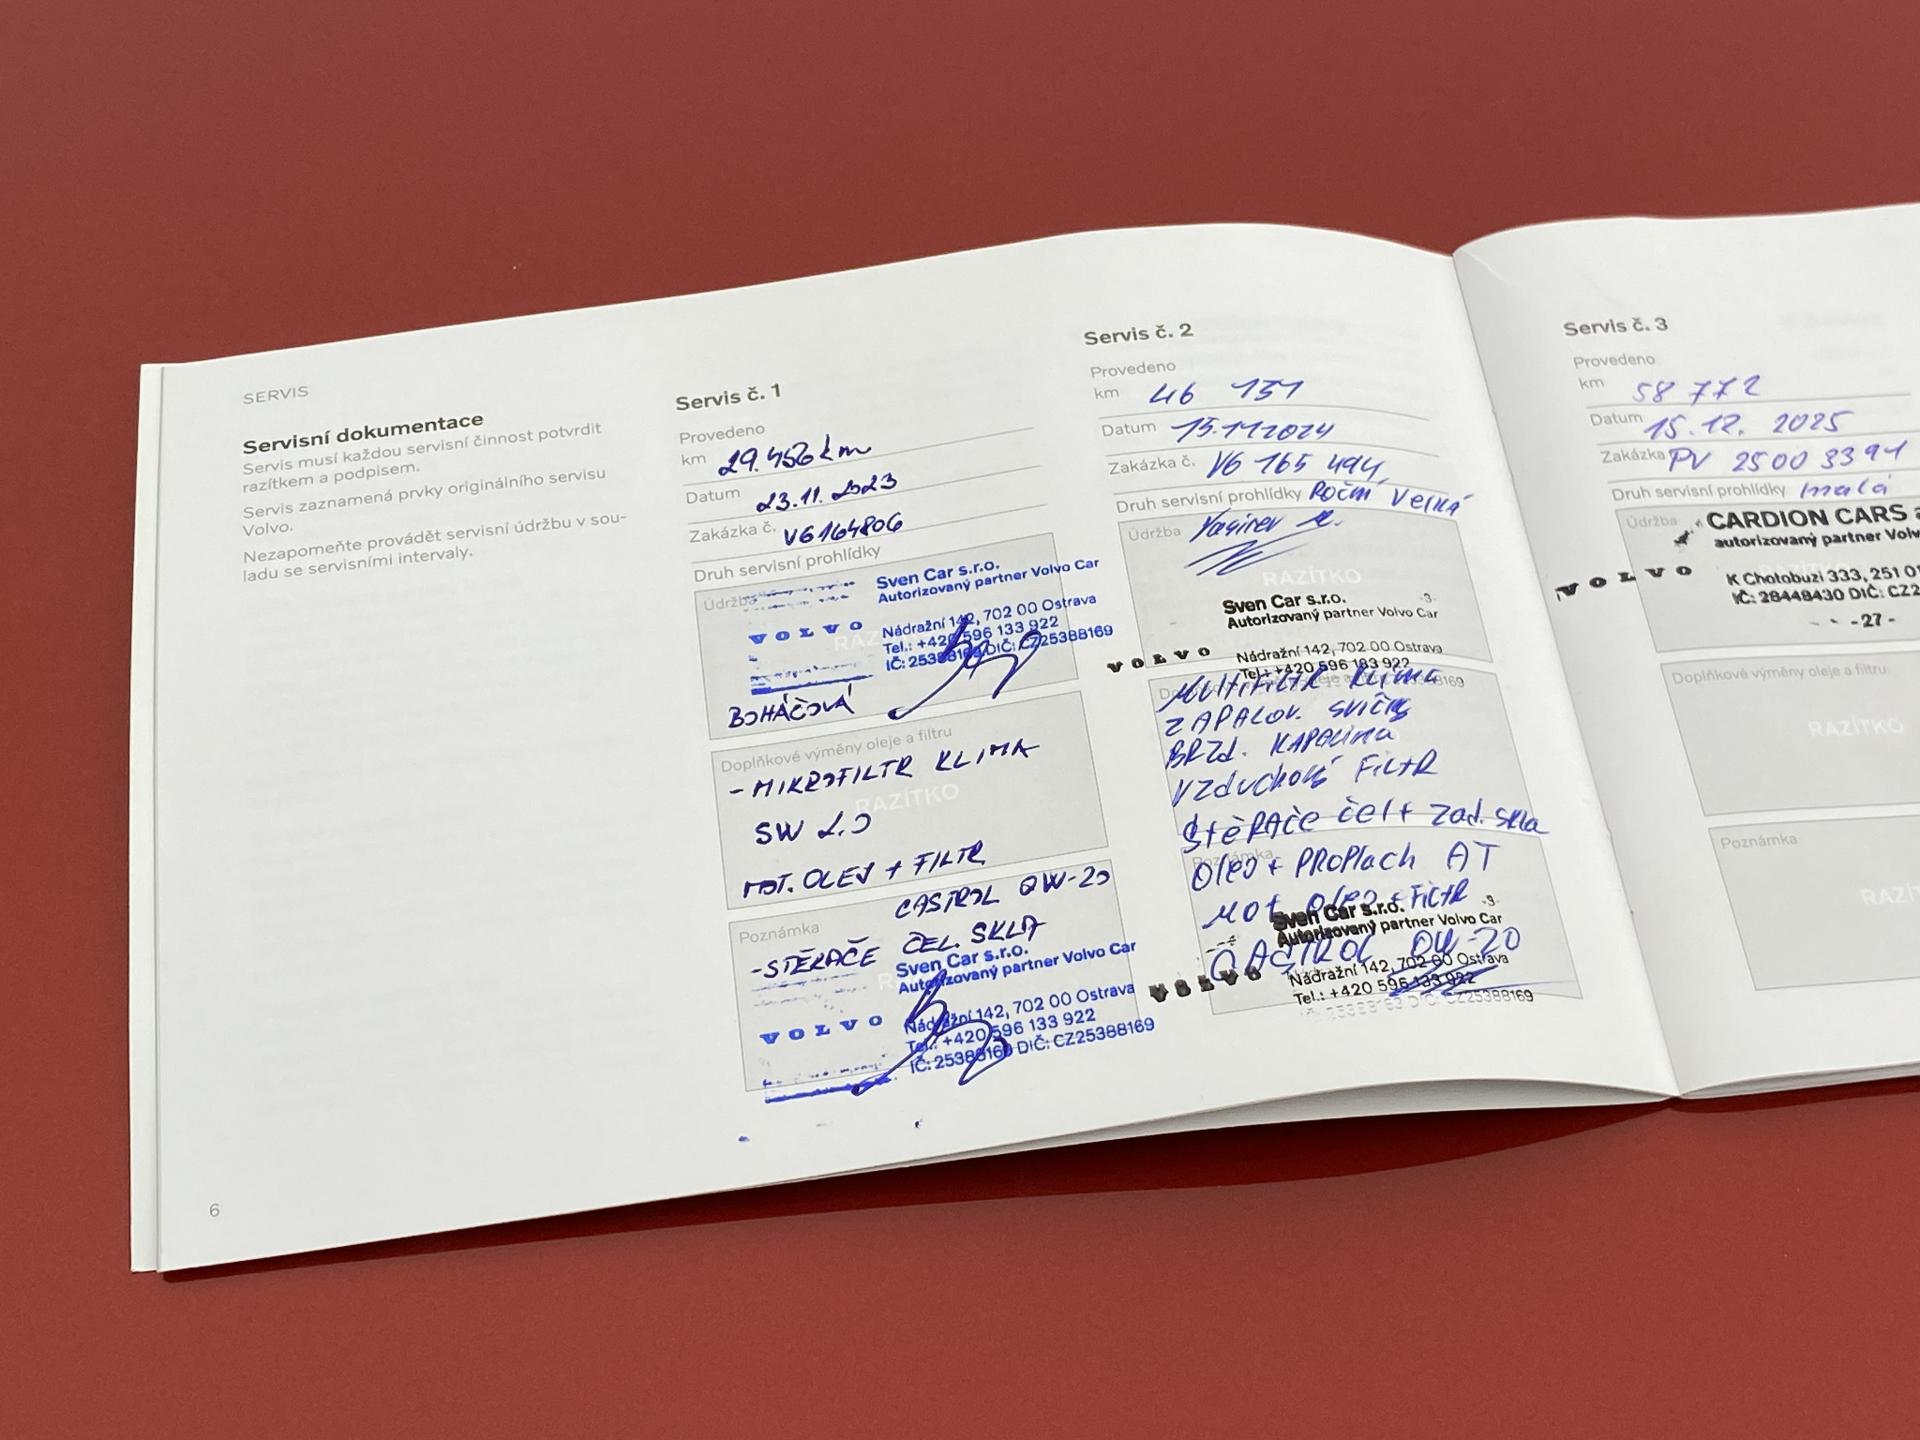 SERVIS
Servisní dokumentace
Servis musí každou servisní činnost potvrdit
razítkem a podpisem.
Servis zaznamená prvky originálního servisu
Volvo.
Nezapomeňte provádět servisní údržbu v sou-
ladu se servisními intervaly.
6
Servis č. 1
Provedeno
km 29.456 km
Datum 23.11. 2023
Zakázka č. V6164806
Druh servisní prohlídky
Údržba
RAZÍTKO
VOLVO
Sven Car s.r.o.
Autorizovaný partner Volvo Car
Nádražní 142, 702 00 Ostrava
Tel.: +420 596 133 922
IČ: 25388169 DIČ: CZ25388169
BOHÁČOVÁ
Doplňkové výměny oleje a filtru
- MIKROFILTR KLIMA
RAZÍTKO
SW 2.0
MOT. OLEJ + FILTR
CASTROL 0W-20
Poznámka
- STĚRAČE ČEL. SKLA
Sven Car s.r.o.
Autorizovaný partner Volvo Car
VOLVO
Nádražní 142, 702 00 Ostrava
Tel.: +420 596 133 922
IČ: 25388169 DIČ: CZ25388169
Servis č. 2
Provedeno
km 46 131
Datum 15.11.2024
Zakázka č. V6 165 494
Druh servisní prohlídky Roční Velká
Údržba
RAZÍTKO
Sven Car s.r.o. -3-
Autorizovaný partner Volvo Car
VOLVO
Nádražní 142, 702 00 Ostrava
Tel.: +420 596 133 922
Multifiltr Klima
ZAPALOV. SVÍČKY
BRZD. KAPALINA
Vzduchový Filtr
Stěrače čel + zad. skla
Poznámka
Olej + PROPlach AT
Mot olej + Filtr
Sven Car s.r.o. -3-
Autorizovaný partner Volvo Car
CASTROL 0W-20
VOLVO
Nádražní 142, 702 00 Ostrava
Tel.: +420 596 133 922
DIČ: CZ25388169
Servis č. 3
Provedeno
km 58 772
Datum 15.12. 2025
Zakázka PV 2500 3391
Druh servisní prohlídky malá
Údržba
CARDION CARS
autorizovaný partner Volv
VOLVO
K Chotobuzi 333, 251 01
IČ: 28448430 DIČ: CZ2
-27-
Doplňkové výměny oleje a filtru
RAZÍTKO
Poznámka
RAZÍT